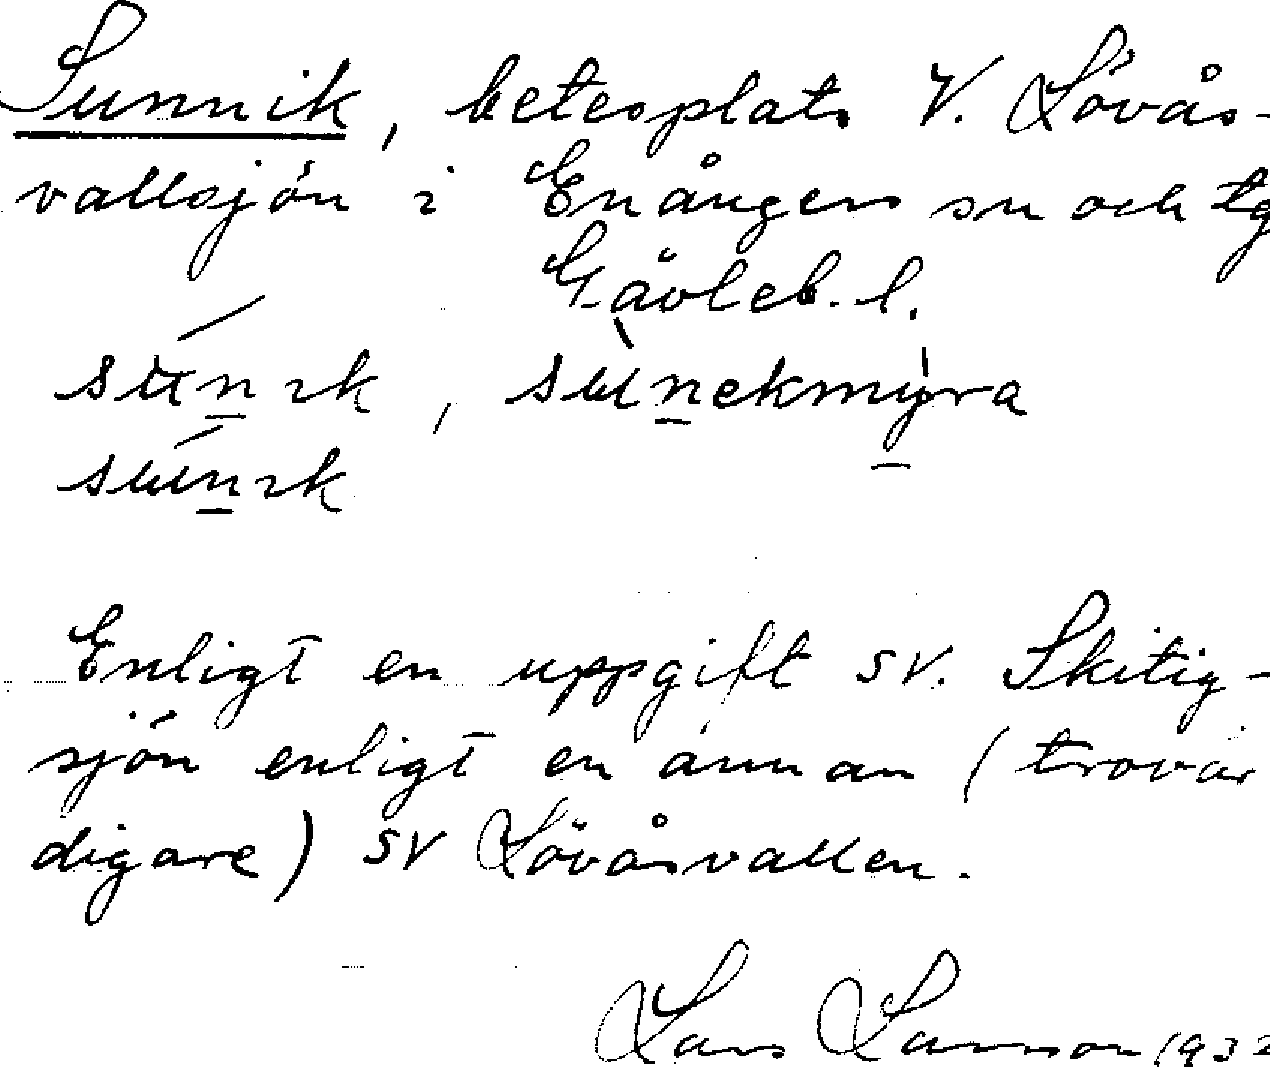 Sunnik, betesplats V. Lövås-
vallsjön i Enångers sn och tg
Gävleb. l.
sunık, sunekmyra
sunık
Enligt en uppgift SV. Skitig-
sjön enligt en annan (trovär
digare) SV Lövåsvallen.
Lars Larsson 1932